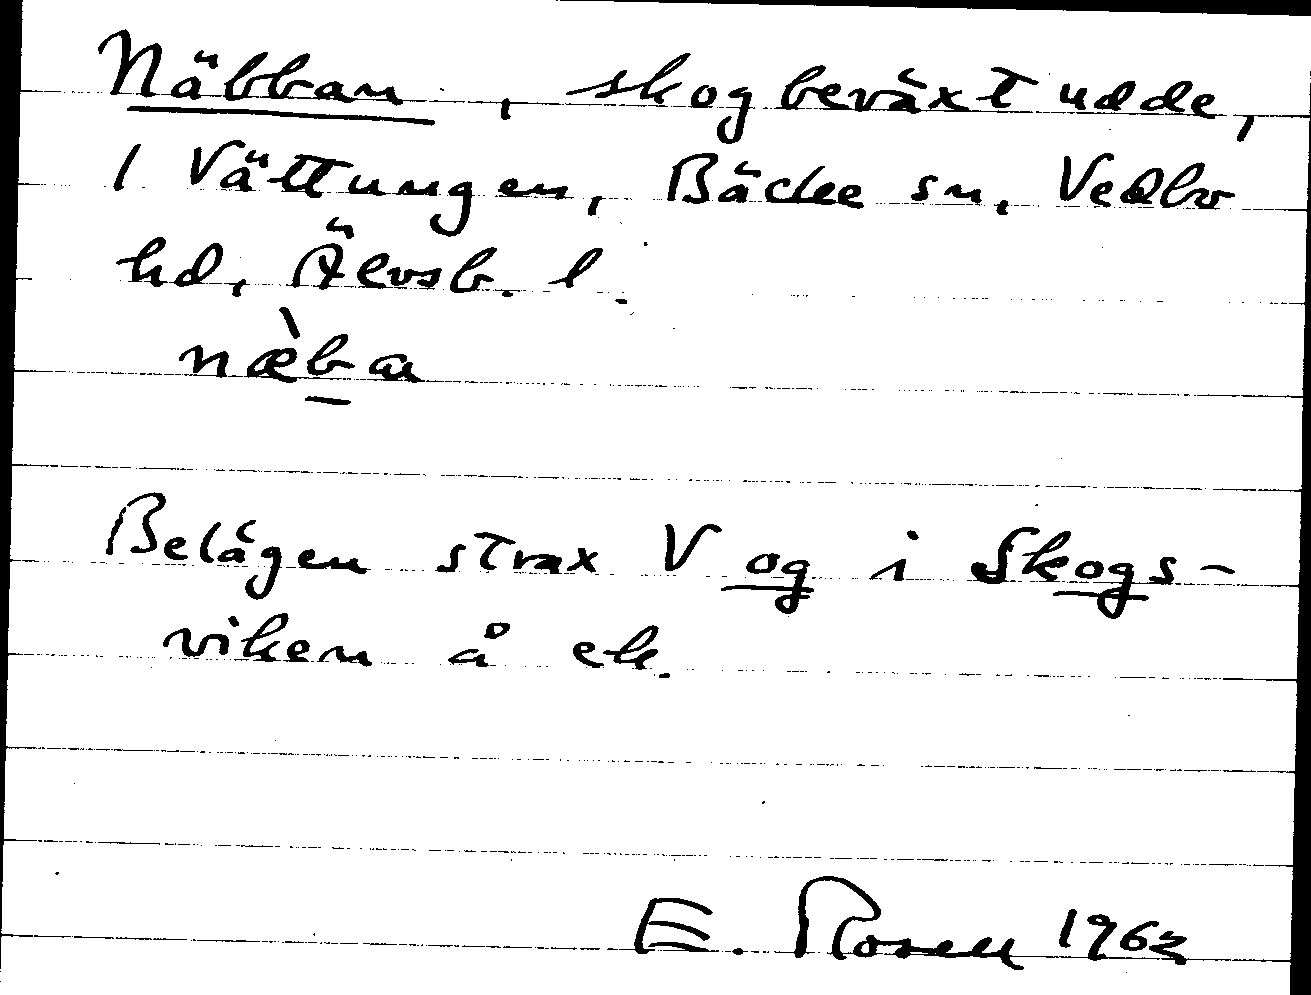 Näbban, skogbeväxt udde,
i Vättungen, Bäcke sn, Vedbo
hd, Älvsb. l.
næ̀ba
Belägen strax V og i Skogs-
viken å ek.
E. Rosell 1963